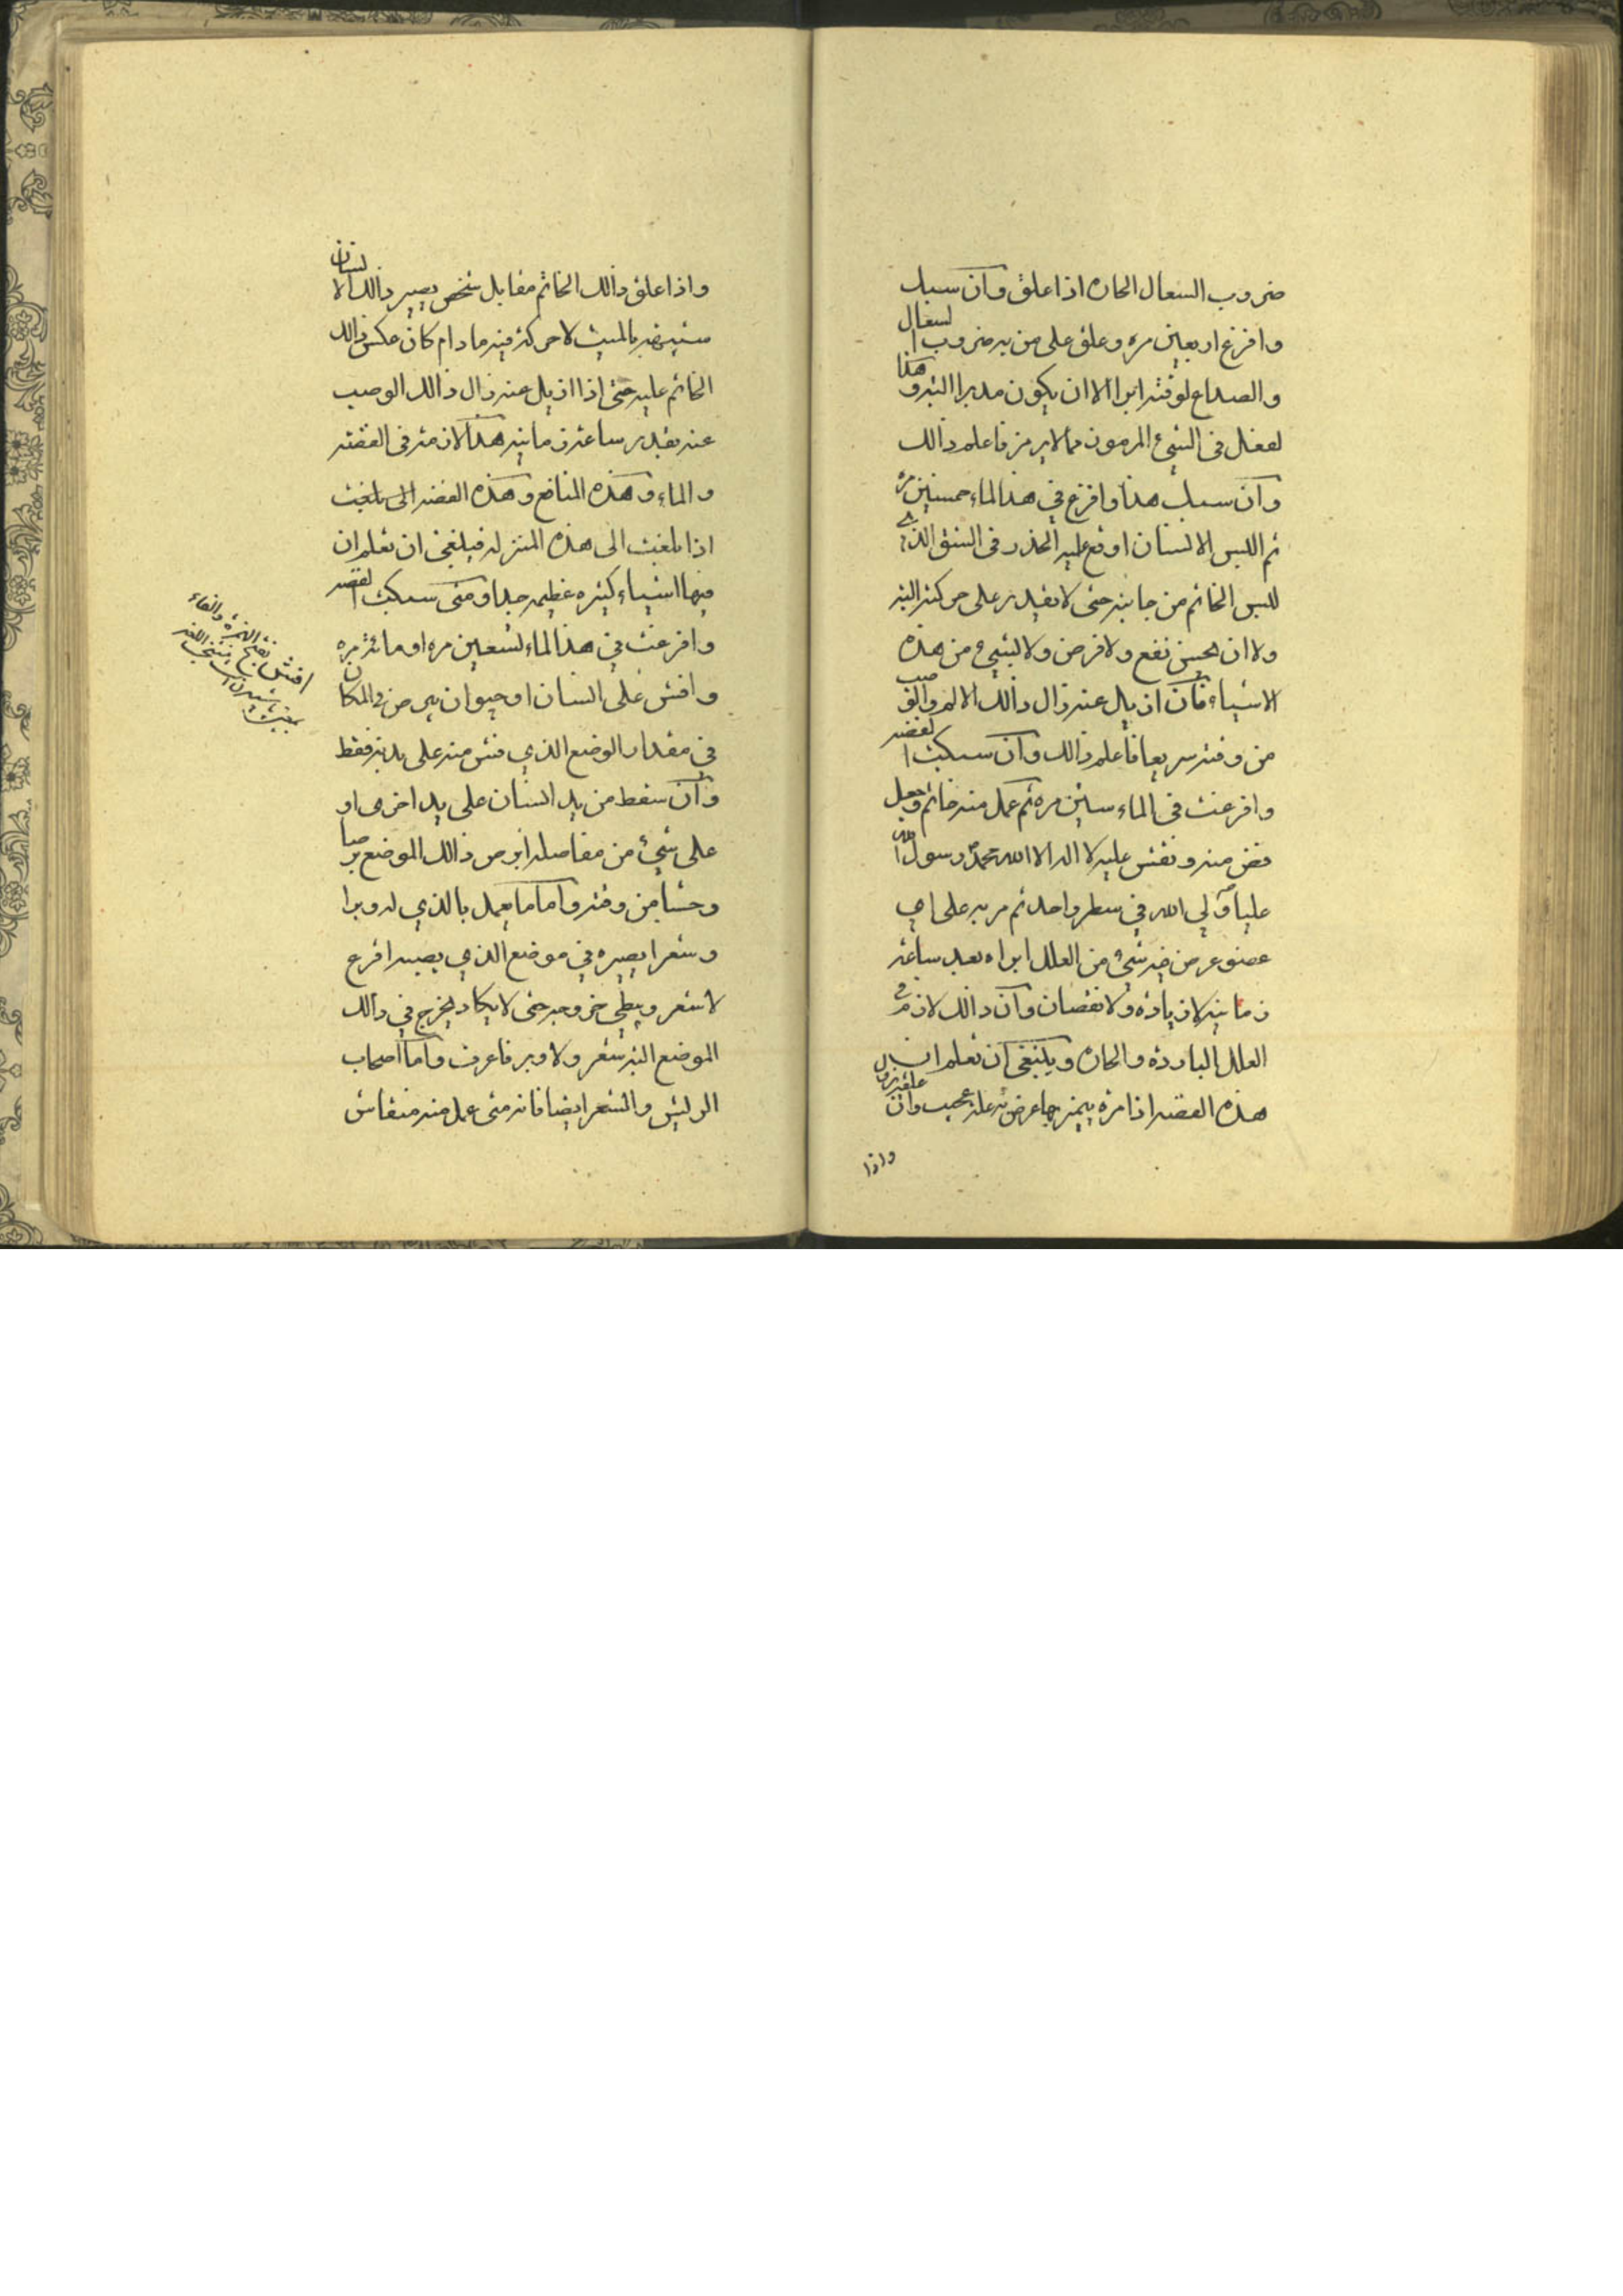 ضروب السعال الحاره اذا علق وان سبك
وافرغ اربعين مره وعلق على من به ضروب السعال
والصداع لوقته ابراالا ان يكون مدبرا البته وهكذا
لفعل في الشيء المرموز مما لا يرمز فاعلم ذالك
وان سبك هذا وافرغ في هذالماء خمسين مره
ثم اللبس الانسان اوقع عليه الخدر في الشق الذي
للبس الخاتم من جانبه حتى لا يقدر على حركته البته
ولا ان يحس نفع ولا قرض ولا لبشيء من هذه
الاشياء فان ازيل عنه زال ذالك الالم والوصب
من وقته سريعا فاعلم ذالك وان سبكت الفضه
وافرغت في الماء ستين مره ثم عمل منه خاتم وجعل
فص منه ونقش عليه لا اله الا الله محمد رسول الله
عليا ولي الله في سطر واحد ثم مر به على اي
عضو عرض فيه شيء من العلل ابراه بعد ساعة
زمانيه لا زياده ولا نقصان وان ذالك لازم في
العلل البارده والحاره وينبغي ان تعلم ان
هذه الفضه اذا مره بيمز بها عرض له عله عجيب وان
واذا
واذا علق ذالك الخاتم مقابل شخص يصير ذالك الانسان
بالميت لا حركة فيه ما دام كان عكس ذالك
الخاتم عليه حتى اذا ازيل عنه زال ذالك الوصب
عنه بقدر ساعة زمانيه هذا لازمه في الفضه
والماء وهذه المنافع وهذه الفضه الى بلغت
اذا بلغت الى هذه المنزله فينبغي ان تعلم ان
فيها اشياء كثيره عظيمه جدا ومتى سبكت الفضه
وافرغت في هذالماء تسعين مره او مائة مره
وافش على انسان او حيوان يبرص في المكان
في مقدار الوضع الذي فش منه على بدنه فقط
وان سقط من يد انسان على يد اخرى او
على شيء من مفاصله ابرص ذالك الموضع برصا
وحشا من وقته واما ما يعمل بالذي له وبرا
وشعرا يصيره في موضع الذي يصيبه اقرع
لا شعر ويبطي خروجه حتى لا يكاد يخرج في ذالك
الموضع البته شعر ولا وبر فاعرف واما اصحاب
الريش والشعر ايضا فانه متى عمل منه منقاش
افش بفتح الهمزة والفاء